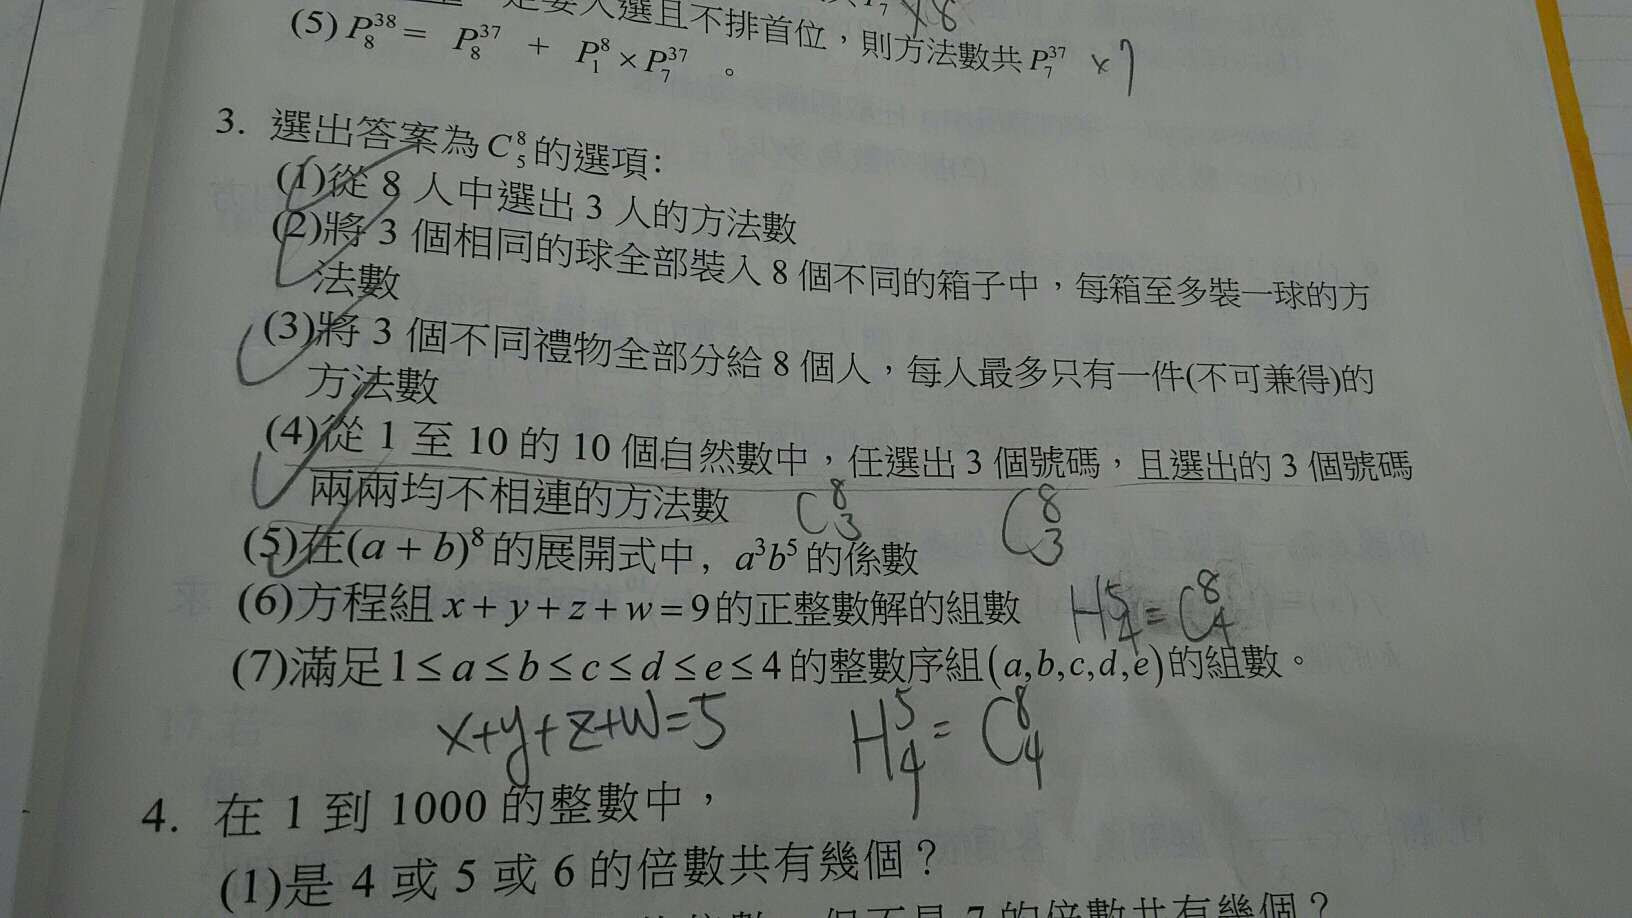 一定要入選且不排首位，則方法數共 P₇³⁷ ×7
(5) P₈³⁸ = P₈³⁷ + P₁⁸ × P₇³⁷ 。
3. 選出答案為 C₅⁸ 的選項:
(1)從 8 人中選出 3 人的方法數
(2)將 3 個相同的球全部裝入 8 個不同的箱子中，每箱至多裝一球的方
法數
(3)將 3 個不同禮物全部分給 8 個人，每人最多只有一件(不可兼得)的
方法數
(4)從 1 至 10 的 10 個自然數中，任選出 3 個號碼，且選出的 3 個號碼
兩兩均不相連的方法數 C₃⁸ C₃⁸
(5)在(a + b)⁸ 的展開式中, a³b⁵ 的係數
(6)方程組 x + y + z + w = 9 的正整數解的組數 H₄⁵ = C₄⁸
(7)滿足 1 ≤ a ≤ b ≤ c ≤ d ≤ e ≤ 4 的整數序組 (a,b,c,d,e) 的組數。
x+y+z+w=5 H₄⁵ = C₄⁸
4. 在 1 到 1000 的整數中，
(1)是 4 或 5 或 6 的倍數共有幾個？
但不是 7 的倍數共有幾個？